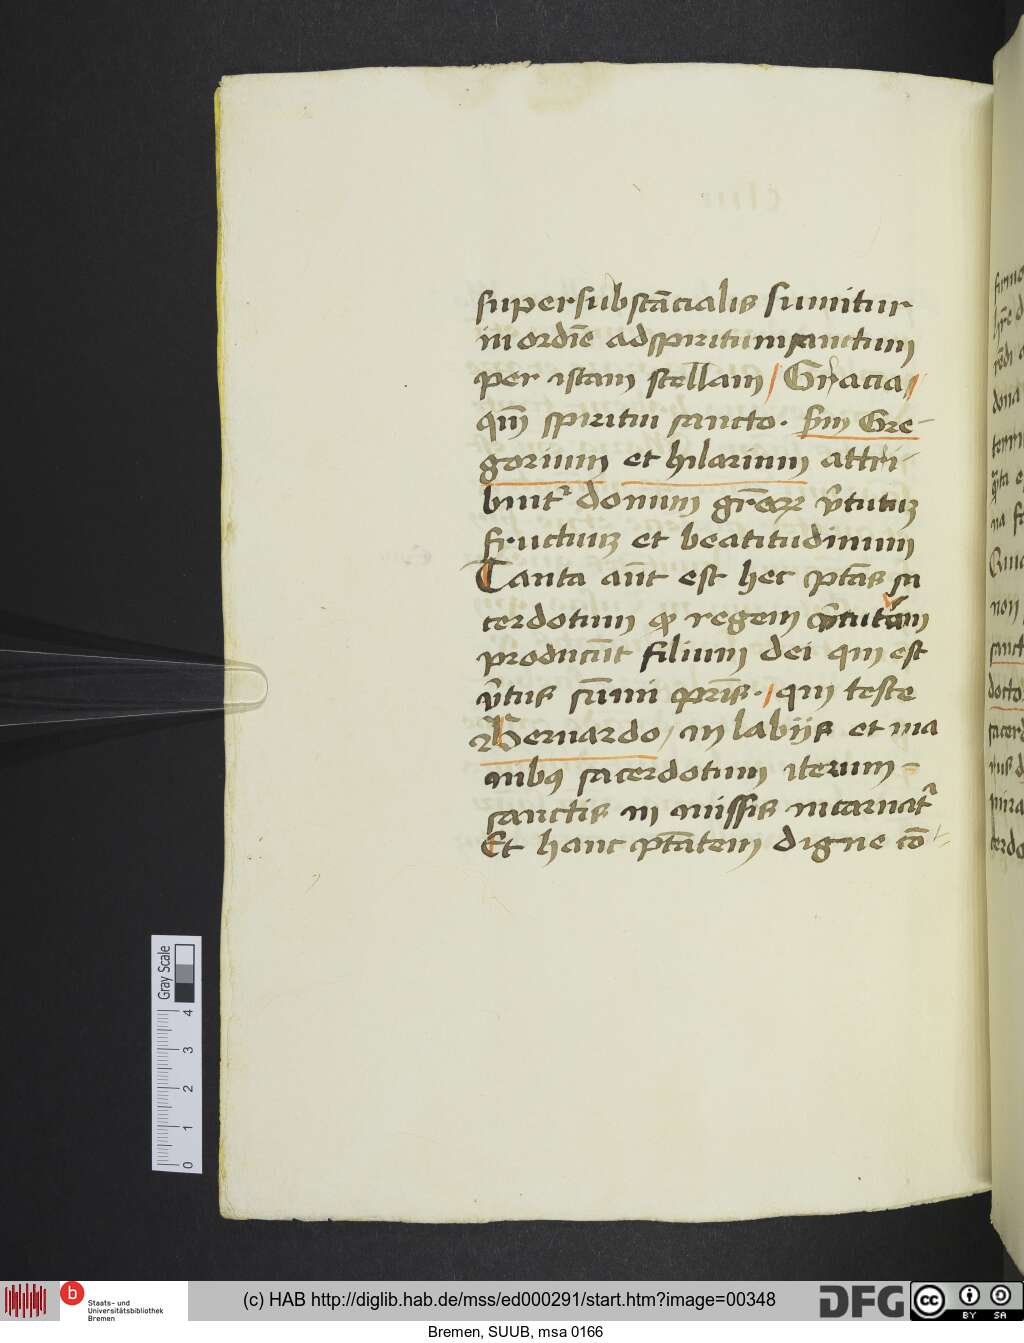 supersubstācialis sumitur
in ordīe ad spiritum sanctum
per istam stellam / Gracia /
qm̄ spiritui sancto. Sm̄ Gre-
gorium et hilarium attri-
buitʳ donum
fructuū et beatitudinum
Tanta aūt est hec ptās sa
cerdotum qͥ regem
producūt filium dei qui est
sūmi pr̄is. / qui teste
Bernardo / in labijs et ma
nibꝰ sacerdotum iterum
sanctis in missis incarnātʳ
Et hanc ptātem digne cō-
Gray Scale
4
3
2
1
0
b
Staats- und
Universitätsbibliothek
Bremen
(c) HAB http://diglib.hab.de/mss/ed000291/start.htm?image=00348
DFG
cc
BY SA
Bremen, SUUB, msa 0166